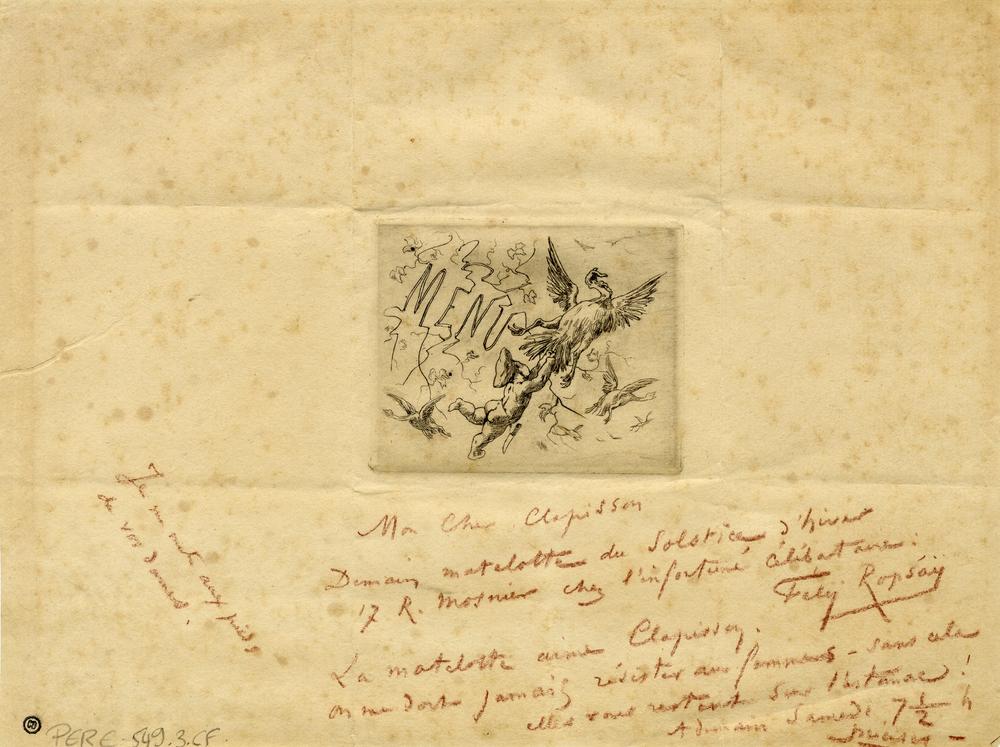 MENU
Mon Cher Clapisson
Demain matelotte du Solstice d'hiver
17 R. Mosnier chez l'infortuné célibataire.
Fely Ropsáÿ
La matelotte aime Clapisson.
on ne doit jamais résister aux femmes - sans cela
elles vous restent sur l'estomac !
A demain Samedi, 7 1/2 h
Je me mets aux pieds
de vos dames.
PER E. 549.3.CF.